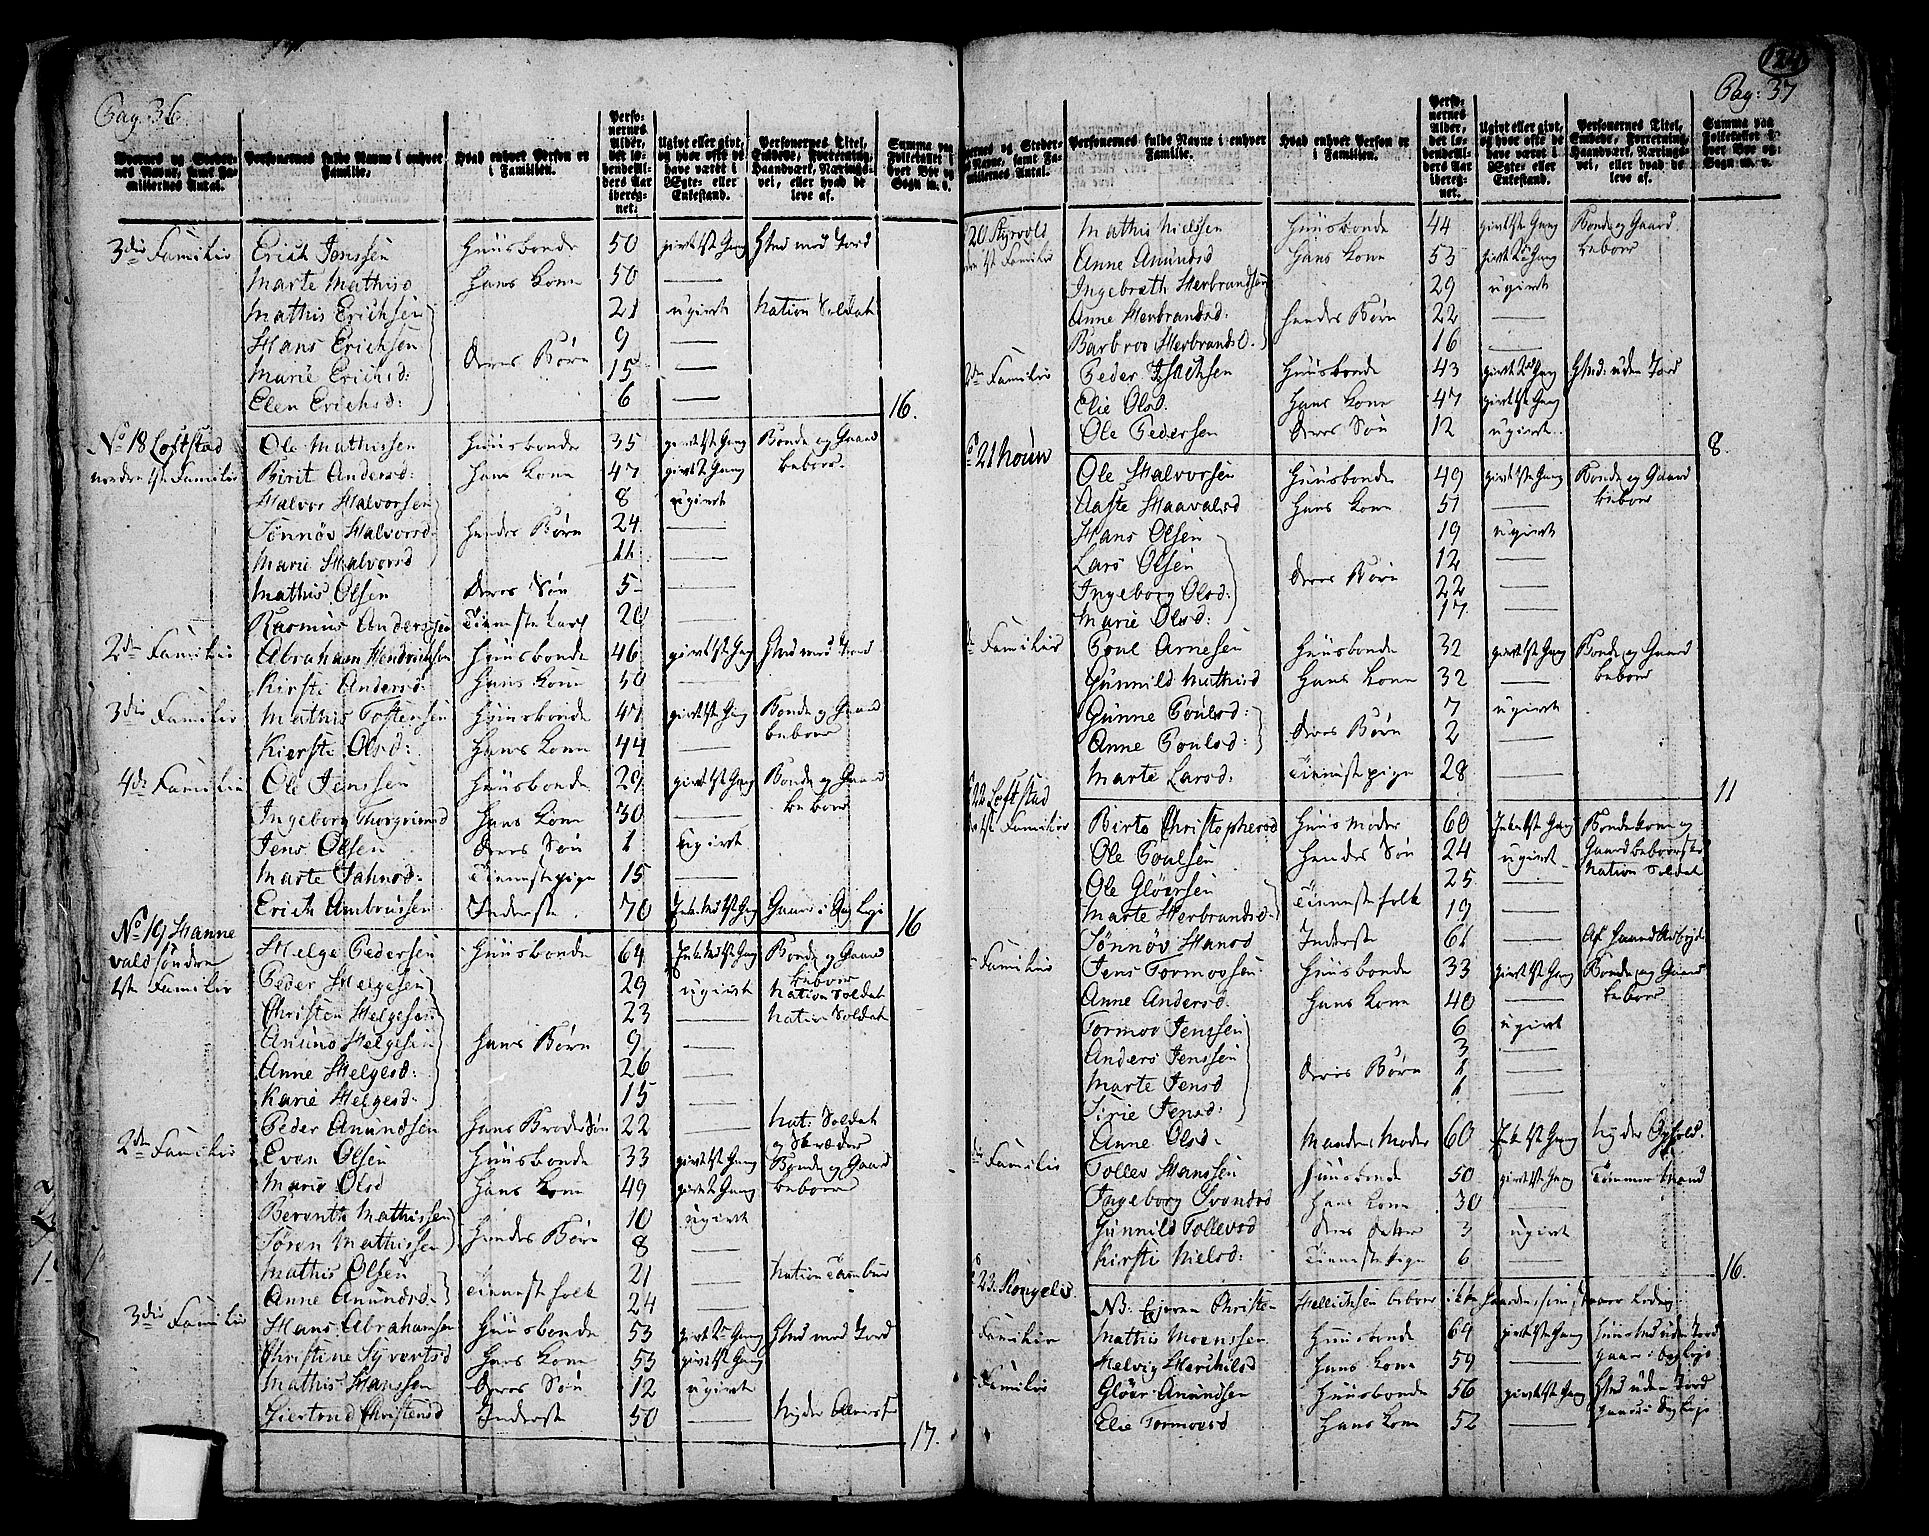 Pag: 36
Gaardenes og Stædernes Navne, samt Familiernes Antal.
Personernes fulde Navne i enhver Familie.
Hvad enhver Person er i Familien.
Personernes Alder, det løbende Alders Aar iberegnet.
Ugivt eller givt, og hvor ofte de have været i Ægte- eller Enkestand.
Personernes Titel, Embede, Forretning, Haandværk, Næringsvei, eller hvad de leve af.
3die Familie Erich Jenssen Huusbonde 50 givt 1st Gang Husmd med Jord
Marte Mathisd Hans Kone 50 —
Mathis Erichsen 21 ugivt Nation Soldat
Hans Erichsen 9 —
Marie Erichsd: deres Børn 15 —
Elen Erichsd: 6 — 16.
No 18 Loftstad Ole Mathissen Huusbonde 35 givt 1st Gang Bonde og Gaard
nordre 1ste Familie Birit Andersd: Hans Kone 47 givt 2 Gang beboer
Halvor Halvorsen 8 ugivt
Sønnøv Halvorsd hendes Børn 24 —
Marie Halvorsd 11 —
Mathis Olsen deres Søn 5 —
Rasmus Anderssen Tieneste karl 20 —
2den Familie Abraham Hendrichsen Huusbonde 46 givt 1st Gang Husmd med Jord
Kirsti Andersd: Hans Kone 50 —
3die Familie Mathis Tostensen Huusbonde 47 givt 1st Gang Bonde og Gaard
Kiersti Olsd: Hans Kone 44 — beboer
4de Familie Ole Jenssen Huusbonde 29 givt 1st Gang Bonde og Gaard
Ingeborg Thorgrimsd Hans Kone 30 — beboer
Jens Olsen deres Søn 1 Ugivt
Marte Jahnsd: Tienestepige 15 —
Erich Ambrussen Inderste 70 Enkemd 1st Gang Gaaer i Læg 16
No 19 Hanne Helge Pedersen Huusbonde 64 Enkemd 1st Gang Bonde og Gaard
vald søndre beboer
1ste Familie Peder Helgesen 29 ugivt Nation Soldat
Christen Helgesen 23 — Nation Soldat
Amund Helgesen Hans Børn 9 —
Anne Helgesd: 26 —
Karie Helgesd: 15 —
Peder Amundsen Hans Broder Søn 22 — Nat: Soldat og Skræder
2den Familie Even Olsen Huusbonde 33 givt 1st Gang Bonde og Gaard
Marie Olsd Hans Kone 49 givt 2 Gang beboer
Berenth Mathissen 10 ugivt
Søren Mathissen hendes Børn 8 —
Mathis Olsen 21 — Nation Tambur
Anne Amundsd: Tieneste folk 24 —
3die Familie Hans Abrahamsen Huusbonde 53 givt 2 Gang Husmd med Jord
Christine Syvertsd Hans Kone 53 givt 1st Gang
Mathis Hanssen deres Søn 12 ugivt
Giertrud Christensd Inderste 50 —
17.
124
Pag: 37
Personernes fulde Navne i enhver Familie.
Hvad enhver Person er i Familien.
Personernes Alder, det løbende Alders Aar iberegnet.
Ugivt eller givt, og hvor ofte de have været i Ægte- eller Enkestand.
Personernes Titel, Embede, Forretning, Haandværk, Næringsvei, eller hvad de leve af.
20 Styrvold Mathis Nielssen Huusbonde 44 givt 1st Gang Bonde og Gaard
1st Familie Anne Amundsd Hans Kone 53 givt 2 Gang beboer
Ingebreth Herbrandsen 29 ugivt
Anne Herbrandsd: hendes Børn 22 —
Barbroe Herbrandsd. 16 —
2den Familie Peder Isachsen Huusbonde 43 givt 2 Gang Husmd: uden Jord
Elie Olsd. Hans Kone 47 givt 1st Gang
Ole Pedersen deres Søn 12 ugivt 8.
21 Ole Halvorsen Huusbonde 49 givt 1st Gang Bonde og Gaard
Aaste Haavalsd Hans Kone 51 — beboer
Hans Olsen 19 ugivt
Lars Olsen 12 —
Ingeborg Olsd: deres Børn 22 —
Marie Olsd: 17 —
Familie Poul Arnesen Huusbonde 32 givt 1st Gang Bonde og Gaard
Gunnild Mathisd Hans Kone 32 — beboer
Gunne Poulsd: 7 ugivt
Anne Poulsd: deres Børn 2 —
Marte Larsd: Tienestepige 28 — 11
22 Loftstad
1st Familie Birte Christophersd Huus Moder 60 Enke 1st Gang Bondekone og
Ole Poulsen hendes Søn 24 ugivt Nation Soldat
Ole Gløersen 25 —
Marte Herbrandsd: Tieneste folk 19 —
Sønnøv Hansd Inderste 61 — Af Haand Arbejde
Familie Jens Tormoesen Huusbonde 33 givt 1st Gang Bonde og Gaard
Anne Andersd. Hans Kone 40 — beboer
Tormov Jenssen 6 ugivt
Anders Jenssen 3 —
Marte Jensd deres Børn 1 —
Sirie Jensd: 1 —
Anne Olsd. Mandens Moder 60 Enke 1st Gang Nyder Ophold.
Familie Tollev Hanssen Huusbonde 50 givt 1st Gang Tømmer Mand
Ingeborg Svendsd Hans Kone 30 —
Gunnild Tollevsd deres Datter 3 ugivt
Kirsti Nielsd: Tieneste Pige 6 — 16.
23. Rongelis NB: Ejeren Christen Hellichsen beboer ikke Gaarden, som staaer ledig
Familie Mathis Moenssen Huusbonde 64 givt 1st Gang Huusmd uden Jord
Helvig Herchilsd Hans Kone 59 —
Familie Gløer Amundsen Huusbonde 56 givt 1st Gang Husmd uden Jord
Elie Tormoesd Hans Kone 52 —